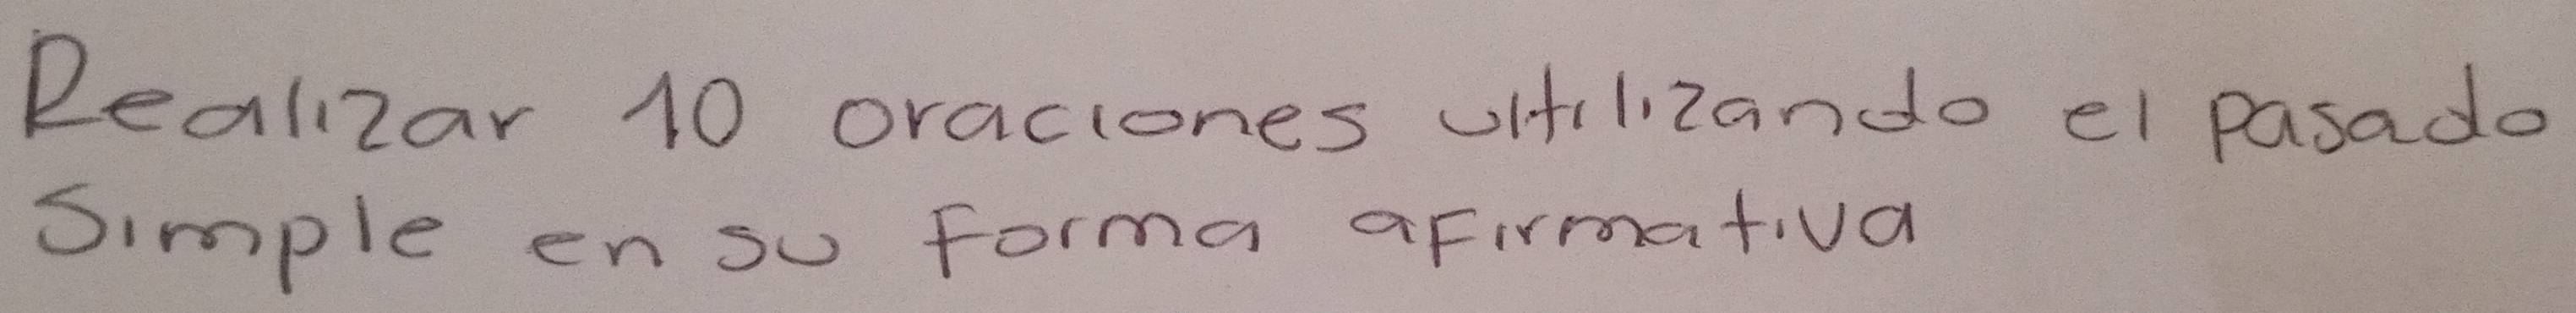 Realizar 10 oraciones ultilizando el pasado
Simple en su forma afirmativa